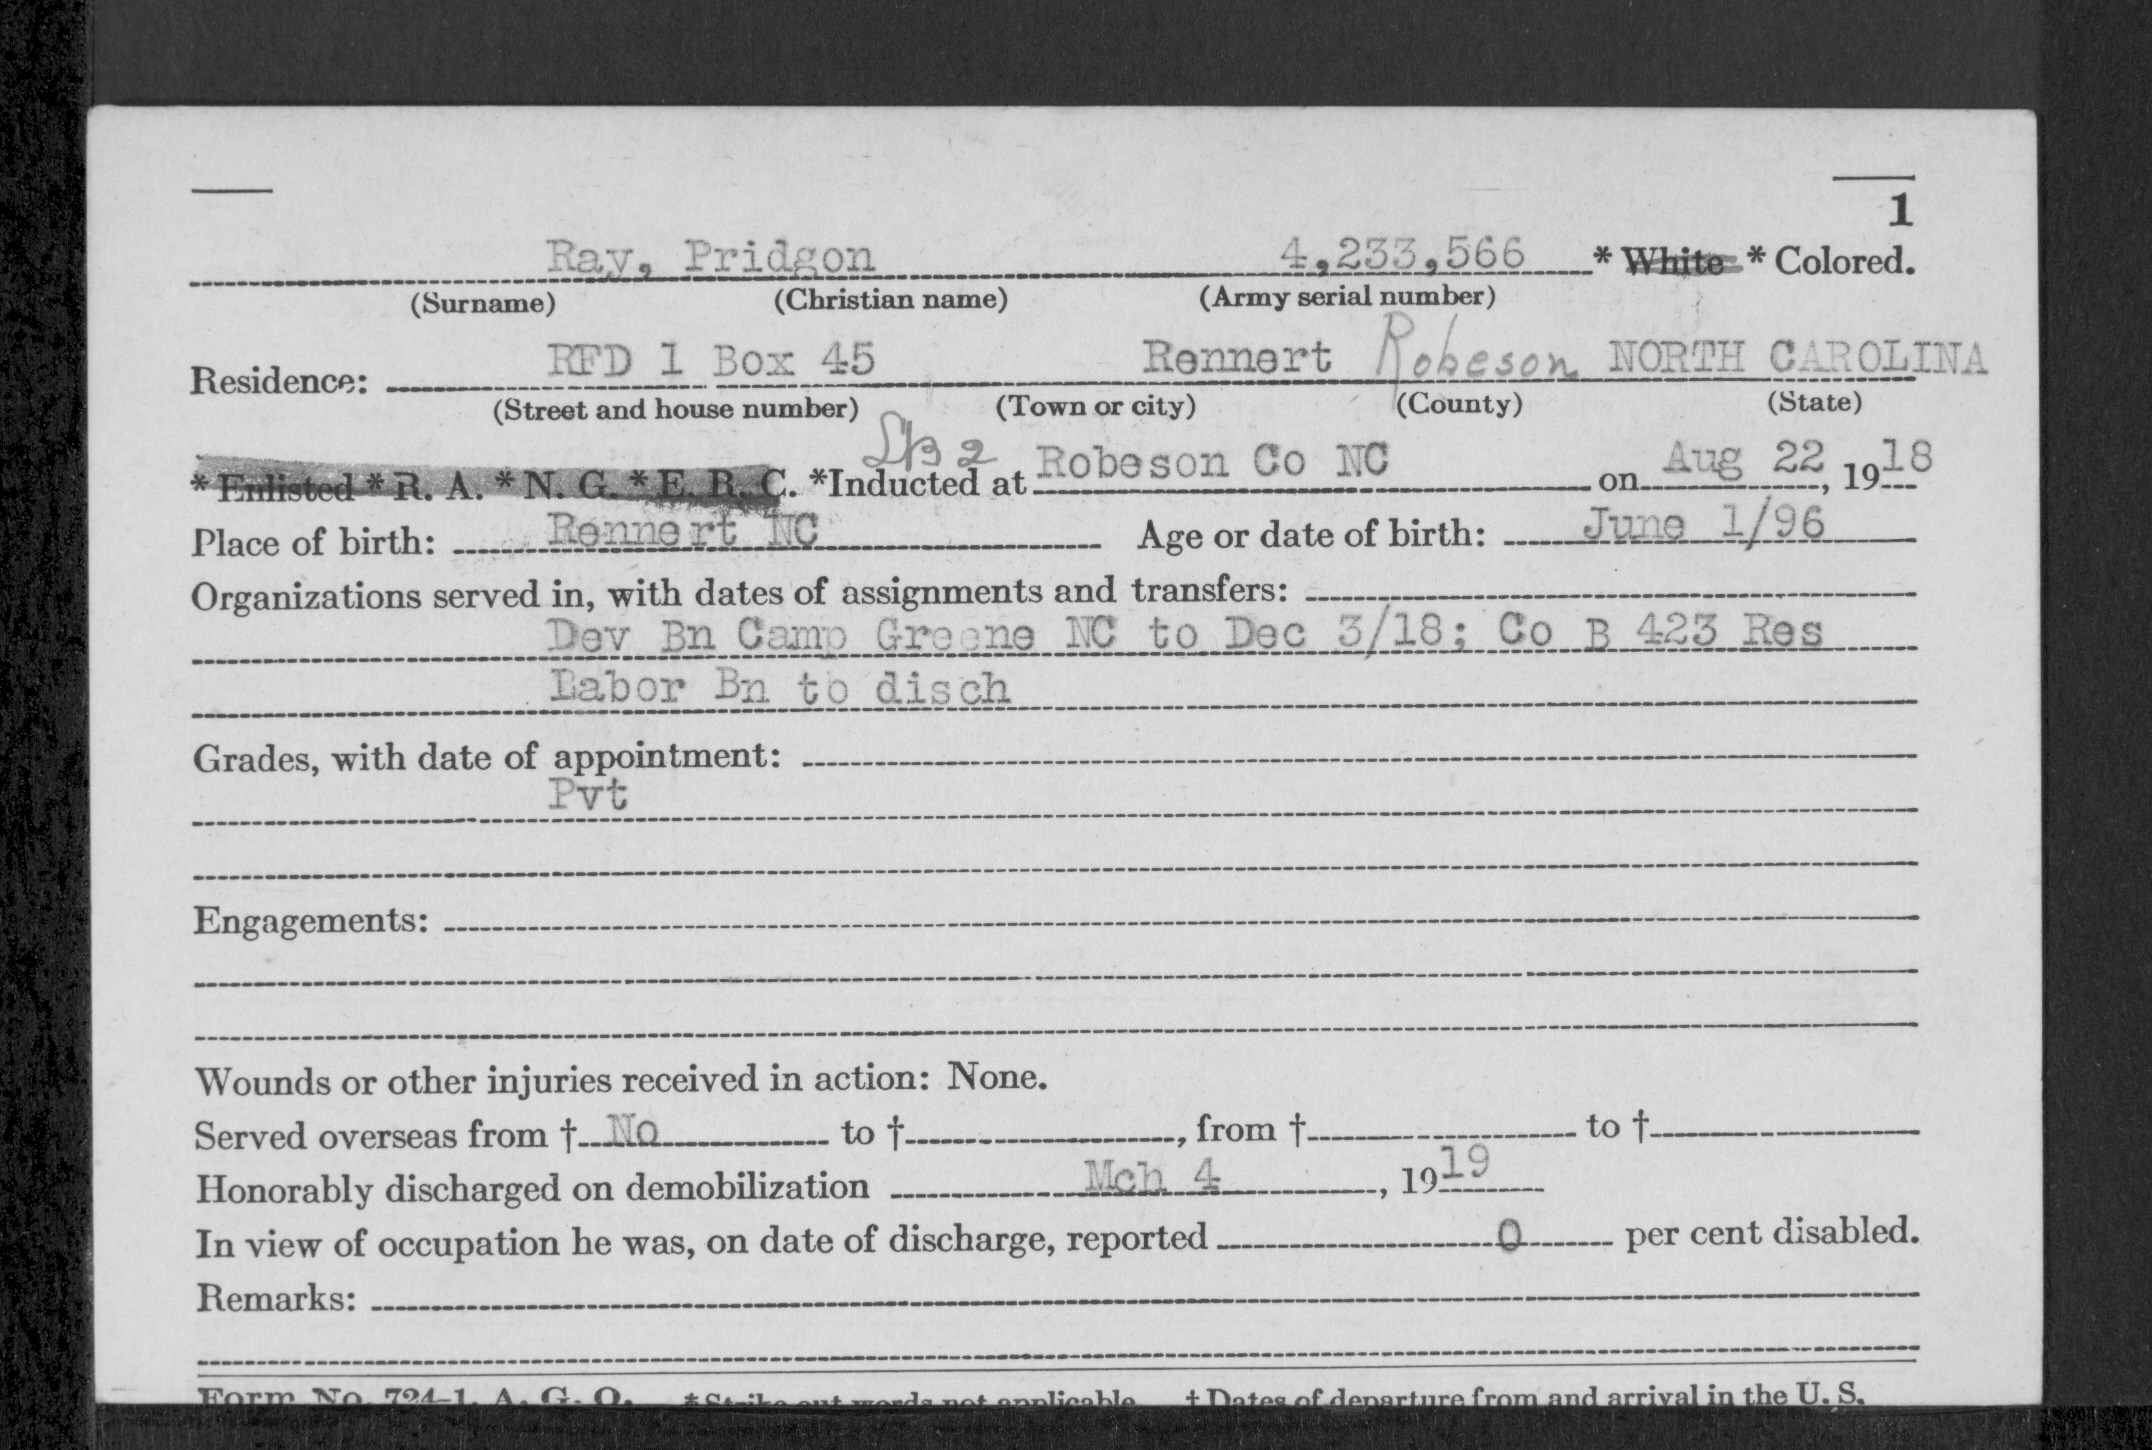 1
Ray, Pridgon 4,233,566 * White * Colored.
(Surname) (Christian name) (Army serial number)
RFD 1 Box 45 Rennert Robeson NORTH CAROLINA
Residence:
(Street and house number) (Town or city) (County) (State)
LB 2
* Enlisted * R. A. * N. G. * E. R. C. *Inducted at Robeson Co NC on Aug 22, 1918
Place of birth: Rennert NC Age or date of birth: June 1/96
Organizations served in, with dates of assignments and transfers:
Dev Bn Camp Greene NC to Dec 3/18; Co B 423 Res
Labor Bn to disch
Grades, with date of appointment:
Pvt
Engagements:
Wounds or other injuries received in action: None.
Served overseas from † No to †, from † to †
Honorably discharged on demobilization Mch 4, 1919
In view of occupation he was, on date of discharge, reported 0 per cent disabled.
Remarks:
Form No. 724-1, A. G. O. * Strike out words not applicable. † Dates of departure from and arrival in the U. S.